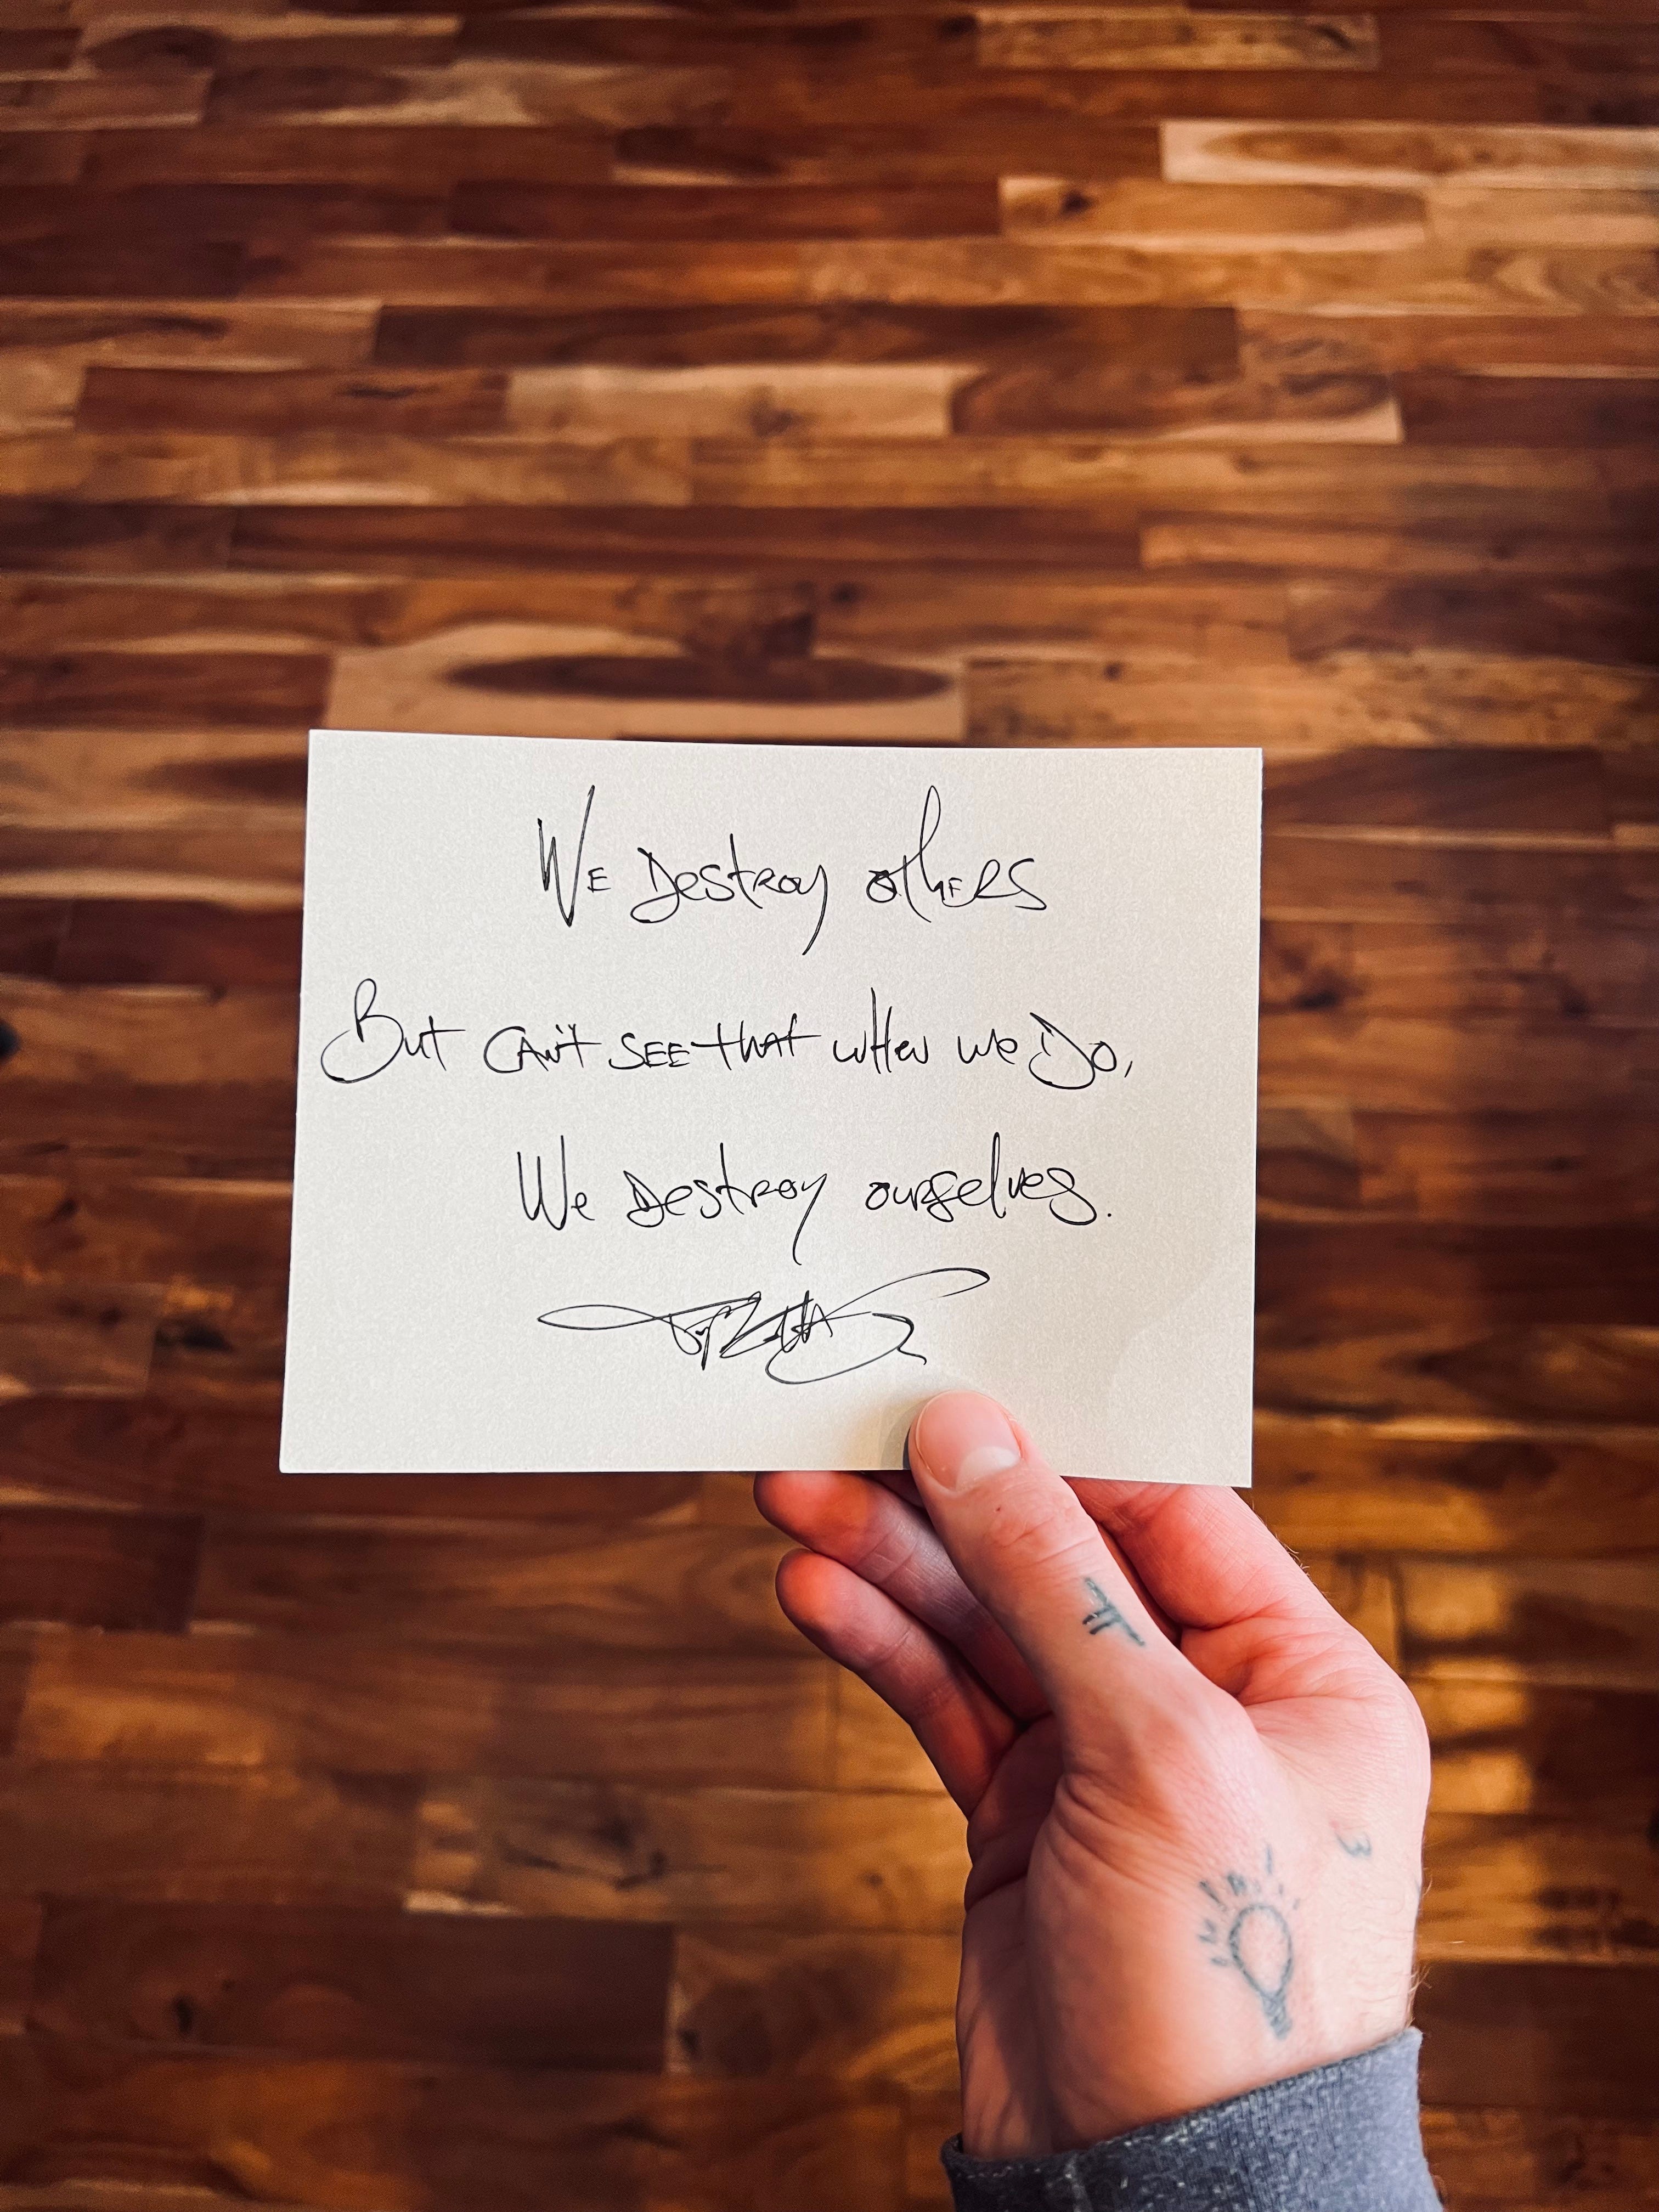 We Destroy others
But can't see that when we Do,
We Destroy ourselves.